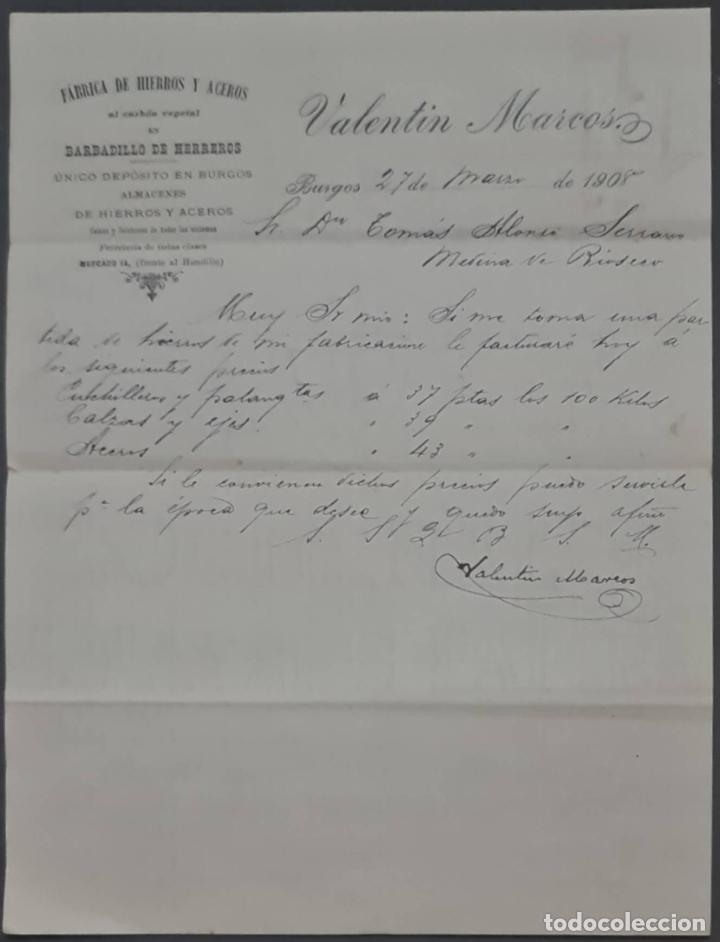 FÁBRICA DE HIERROS Y ACEROS
al carbón vegetal
EN
BARBADILLO DE HERREROS
ÚNICO DEPÓSITO EN BURGOS
ALMACENES
DE HIERROS Y ACEROS
Ferretería de todas clases
MERCADO 14, (frente al Hondillo)
Valentín Marcos
Burgos 27 de Marzo de 1908
Sr. Dn Tomás Alonso Serrano
Medina de Rioseco
Muy Sr mio: Si me toma una par-
tida de hierros de mi fabricacion le facturaré hoy á
los siguientes precios
Cuchilleros y palanqtas á 37 ptas los 100 Kilos
Calzas y ejes " 39 " "
Aceros " 43 " "
Si le convienen dichos precios puedo servirle
pa la época que desea y quedo suyo afmo
S. S. Q. B. S. M.
Valentin Marcos
todocoleccion.net